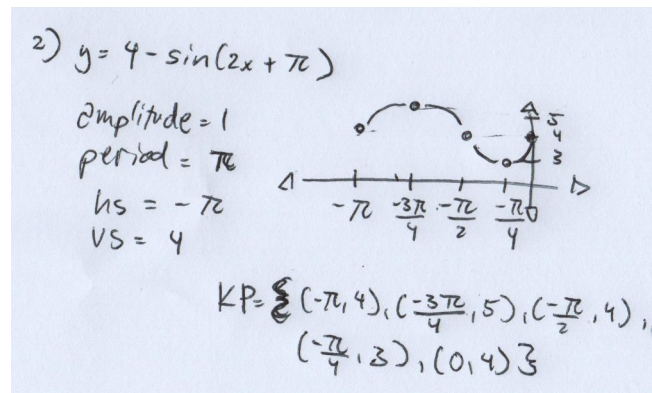 2) y = 4 - sin(2x + π)
amplitude = 1
period = π
hs = - π
VS = 4
5
4
3
-π -3π/4 -π/2 -π/4
KP = { (-π, 4), (-3π/4, 5), (-π/2, 4),
(-π/4, 3), (0, 4) }